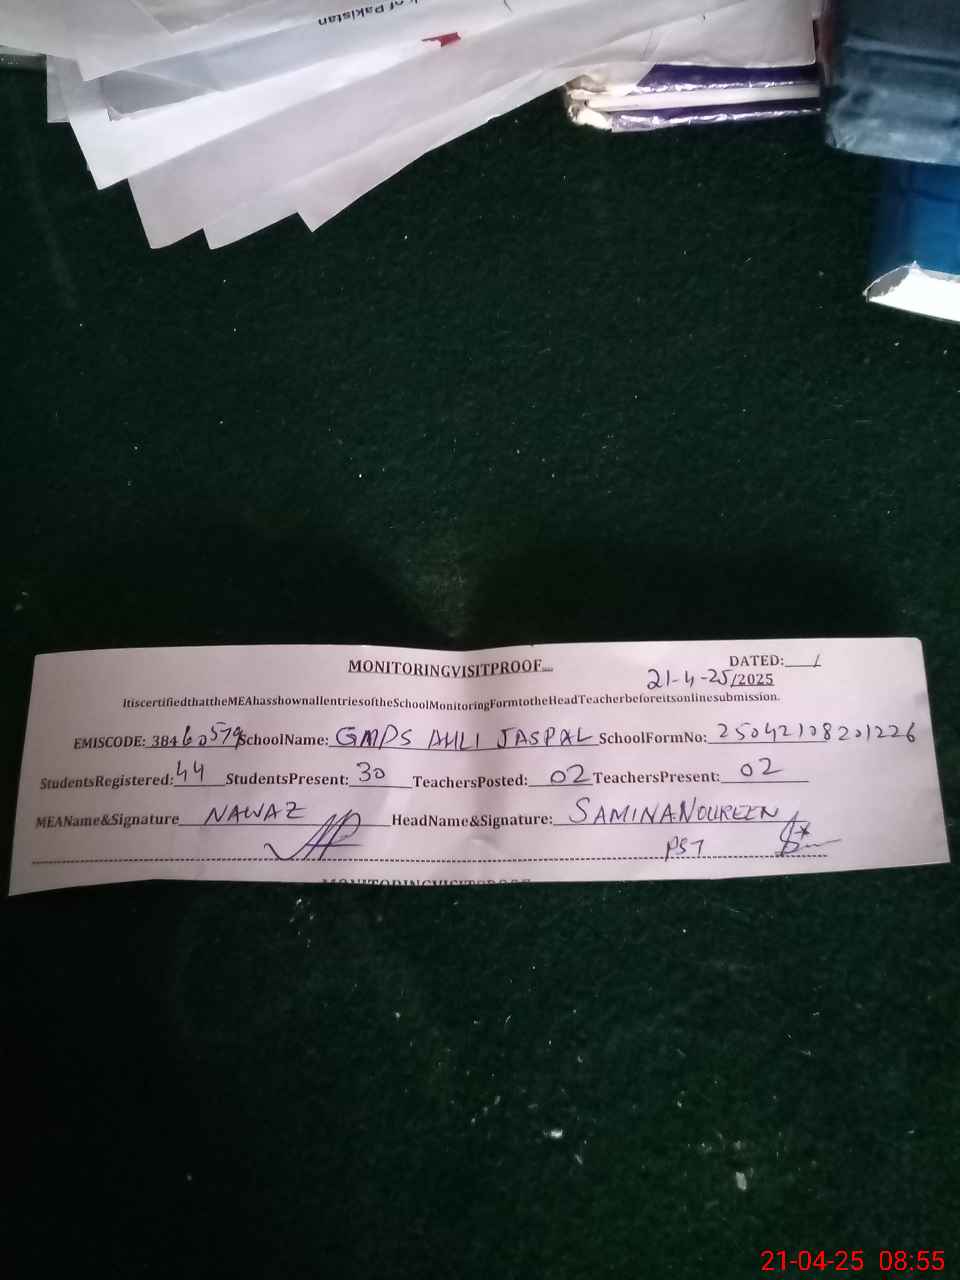 k of Pakistan
MONITORINGVISITPROOF
DATED: /
21-4-25/2025
ItiscertifiedthattheMEAhasshownallentriesoftheSchoolMonitoringFormtotheHeadTeacherbeforeitsonlinesubmission.
EMISCODE: 38460579 SchoolName: GMPS AHLI JASPAL SchoolFormNo: 25042108201226
StudentsRegistered: 44 StudentsPresent: 30 TeachersPosted: 02 TeachersPresent: 02
MEAName&Signature NAWAZ HeadName&Signature: SAMINA NOUREEN
PST
MONITORINGVISITPROOF
21-04-25 08:55